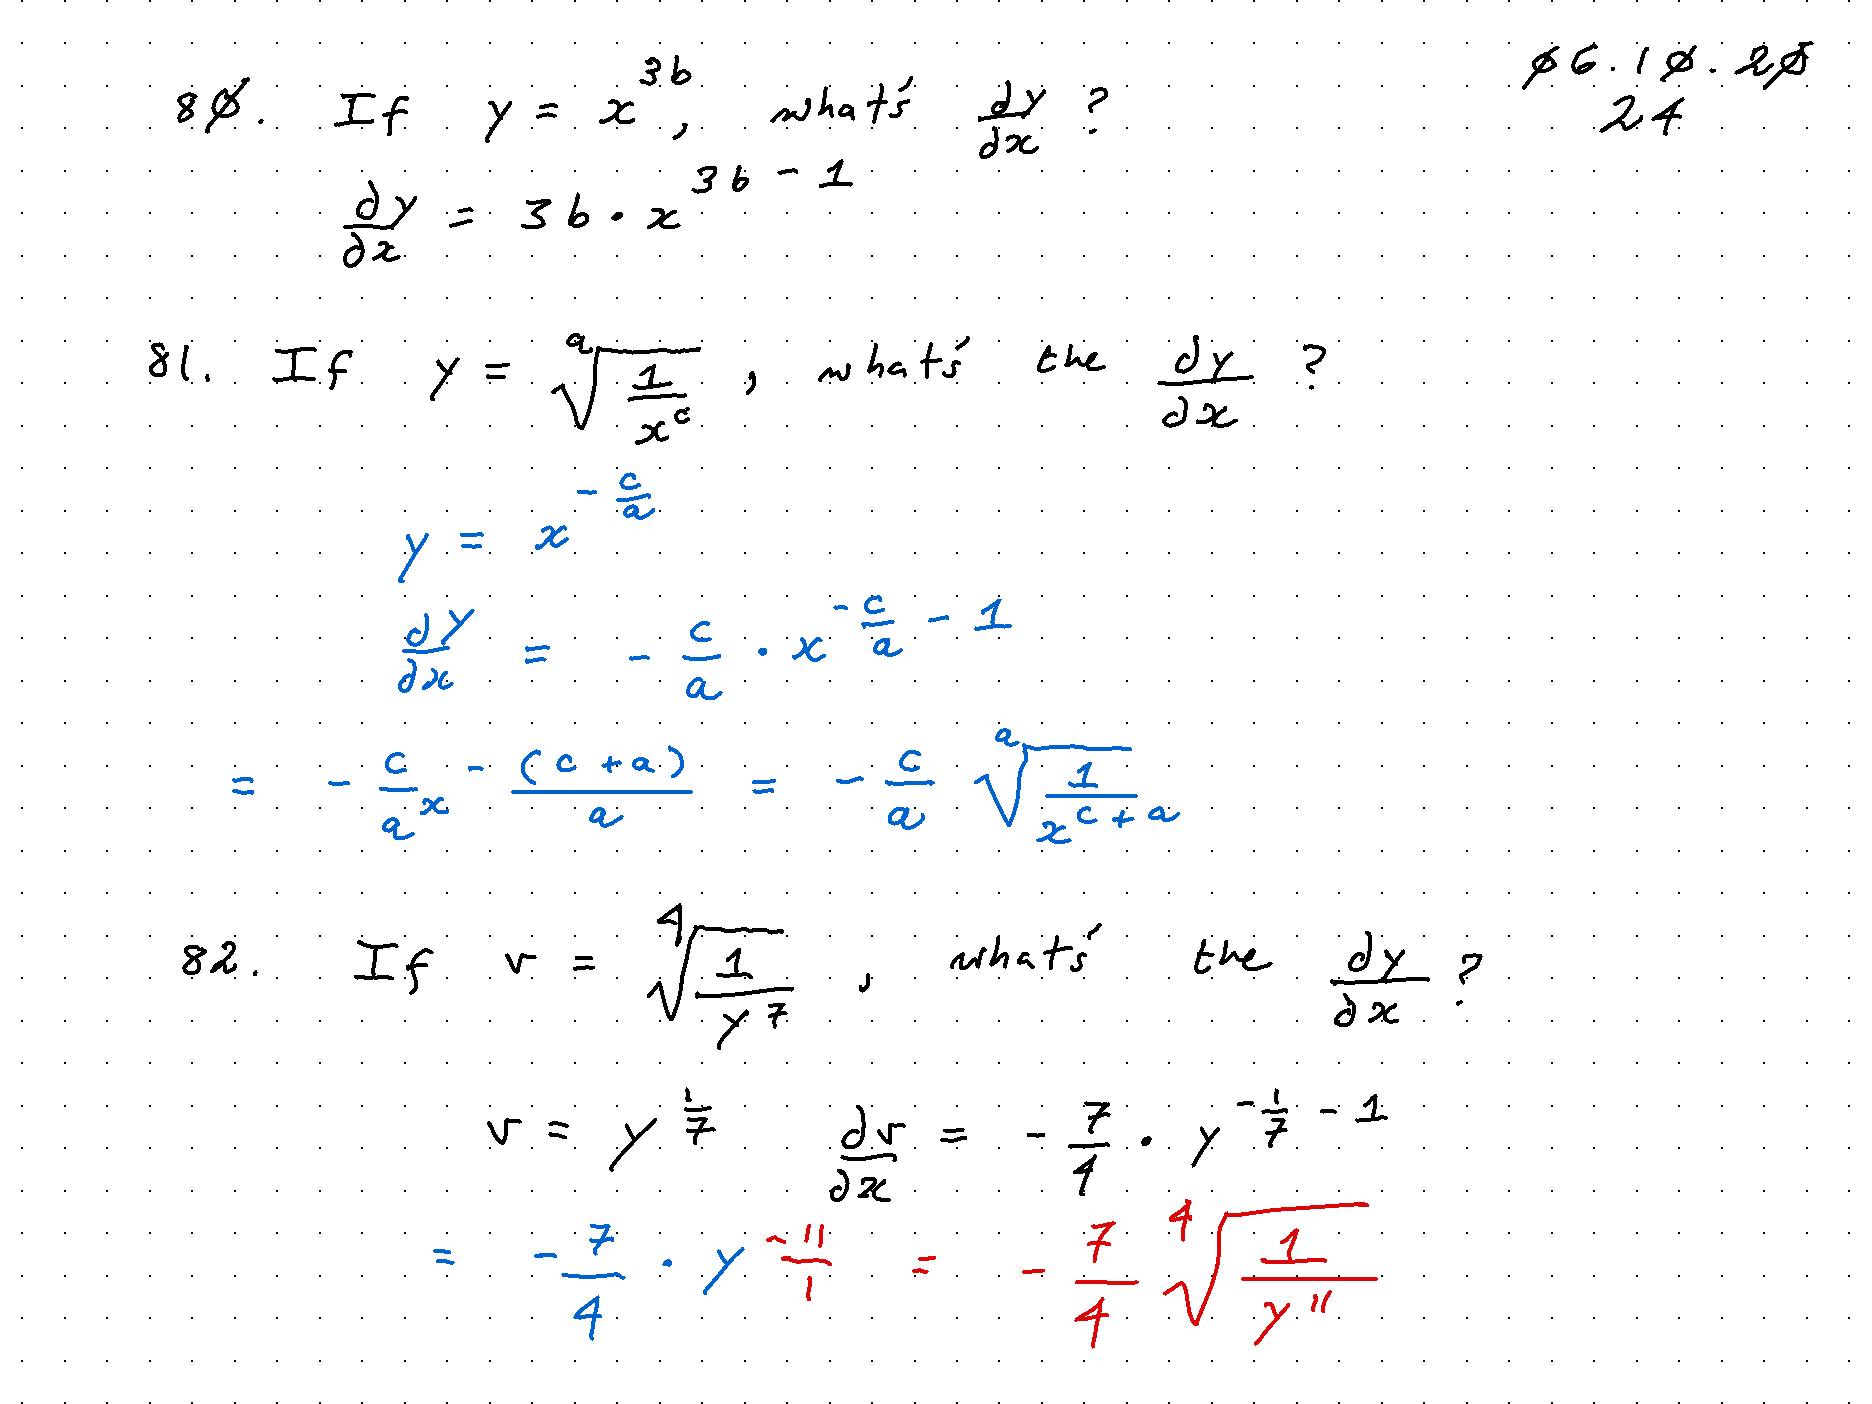 06.10.20
24
80. If y = x^{3b}, what's dy/dx ?
dy/dx = 3b · x^{3b - 1}
81. If y = \sqrt[a]{1/x^c}, what's the dy/dx ?
y = x^{-c/a}
dy/dx = - c/a · x^{-c/a - 1}
= - c/a x^{-(c+a)/a} = - c/a \sqrt[a]{1/x^{c+a}}
82. If v = \sqrt[4]{1/y^7}, what's the dy/dx ?
v = y^{1/7} dv/dx = - 7/4 · y^{-1/7 - 1}
= - 7/4 · y^{-11/1} = - 7/4 \sqrt[4]{1/y^{11}}